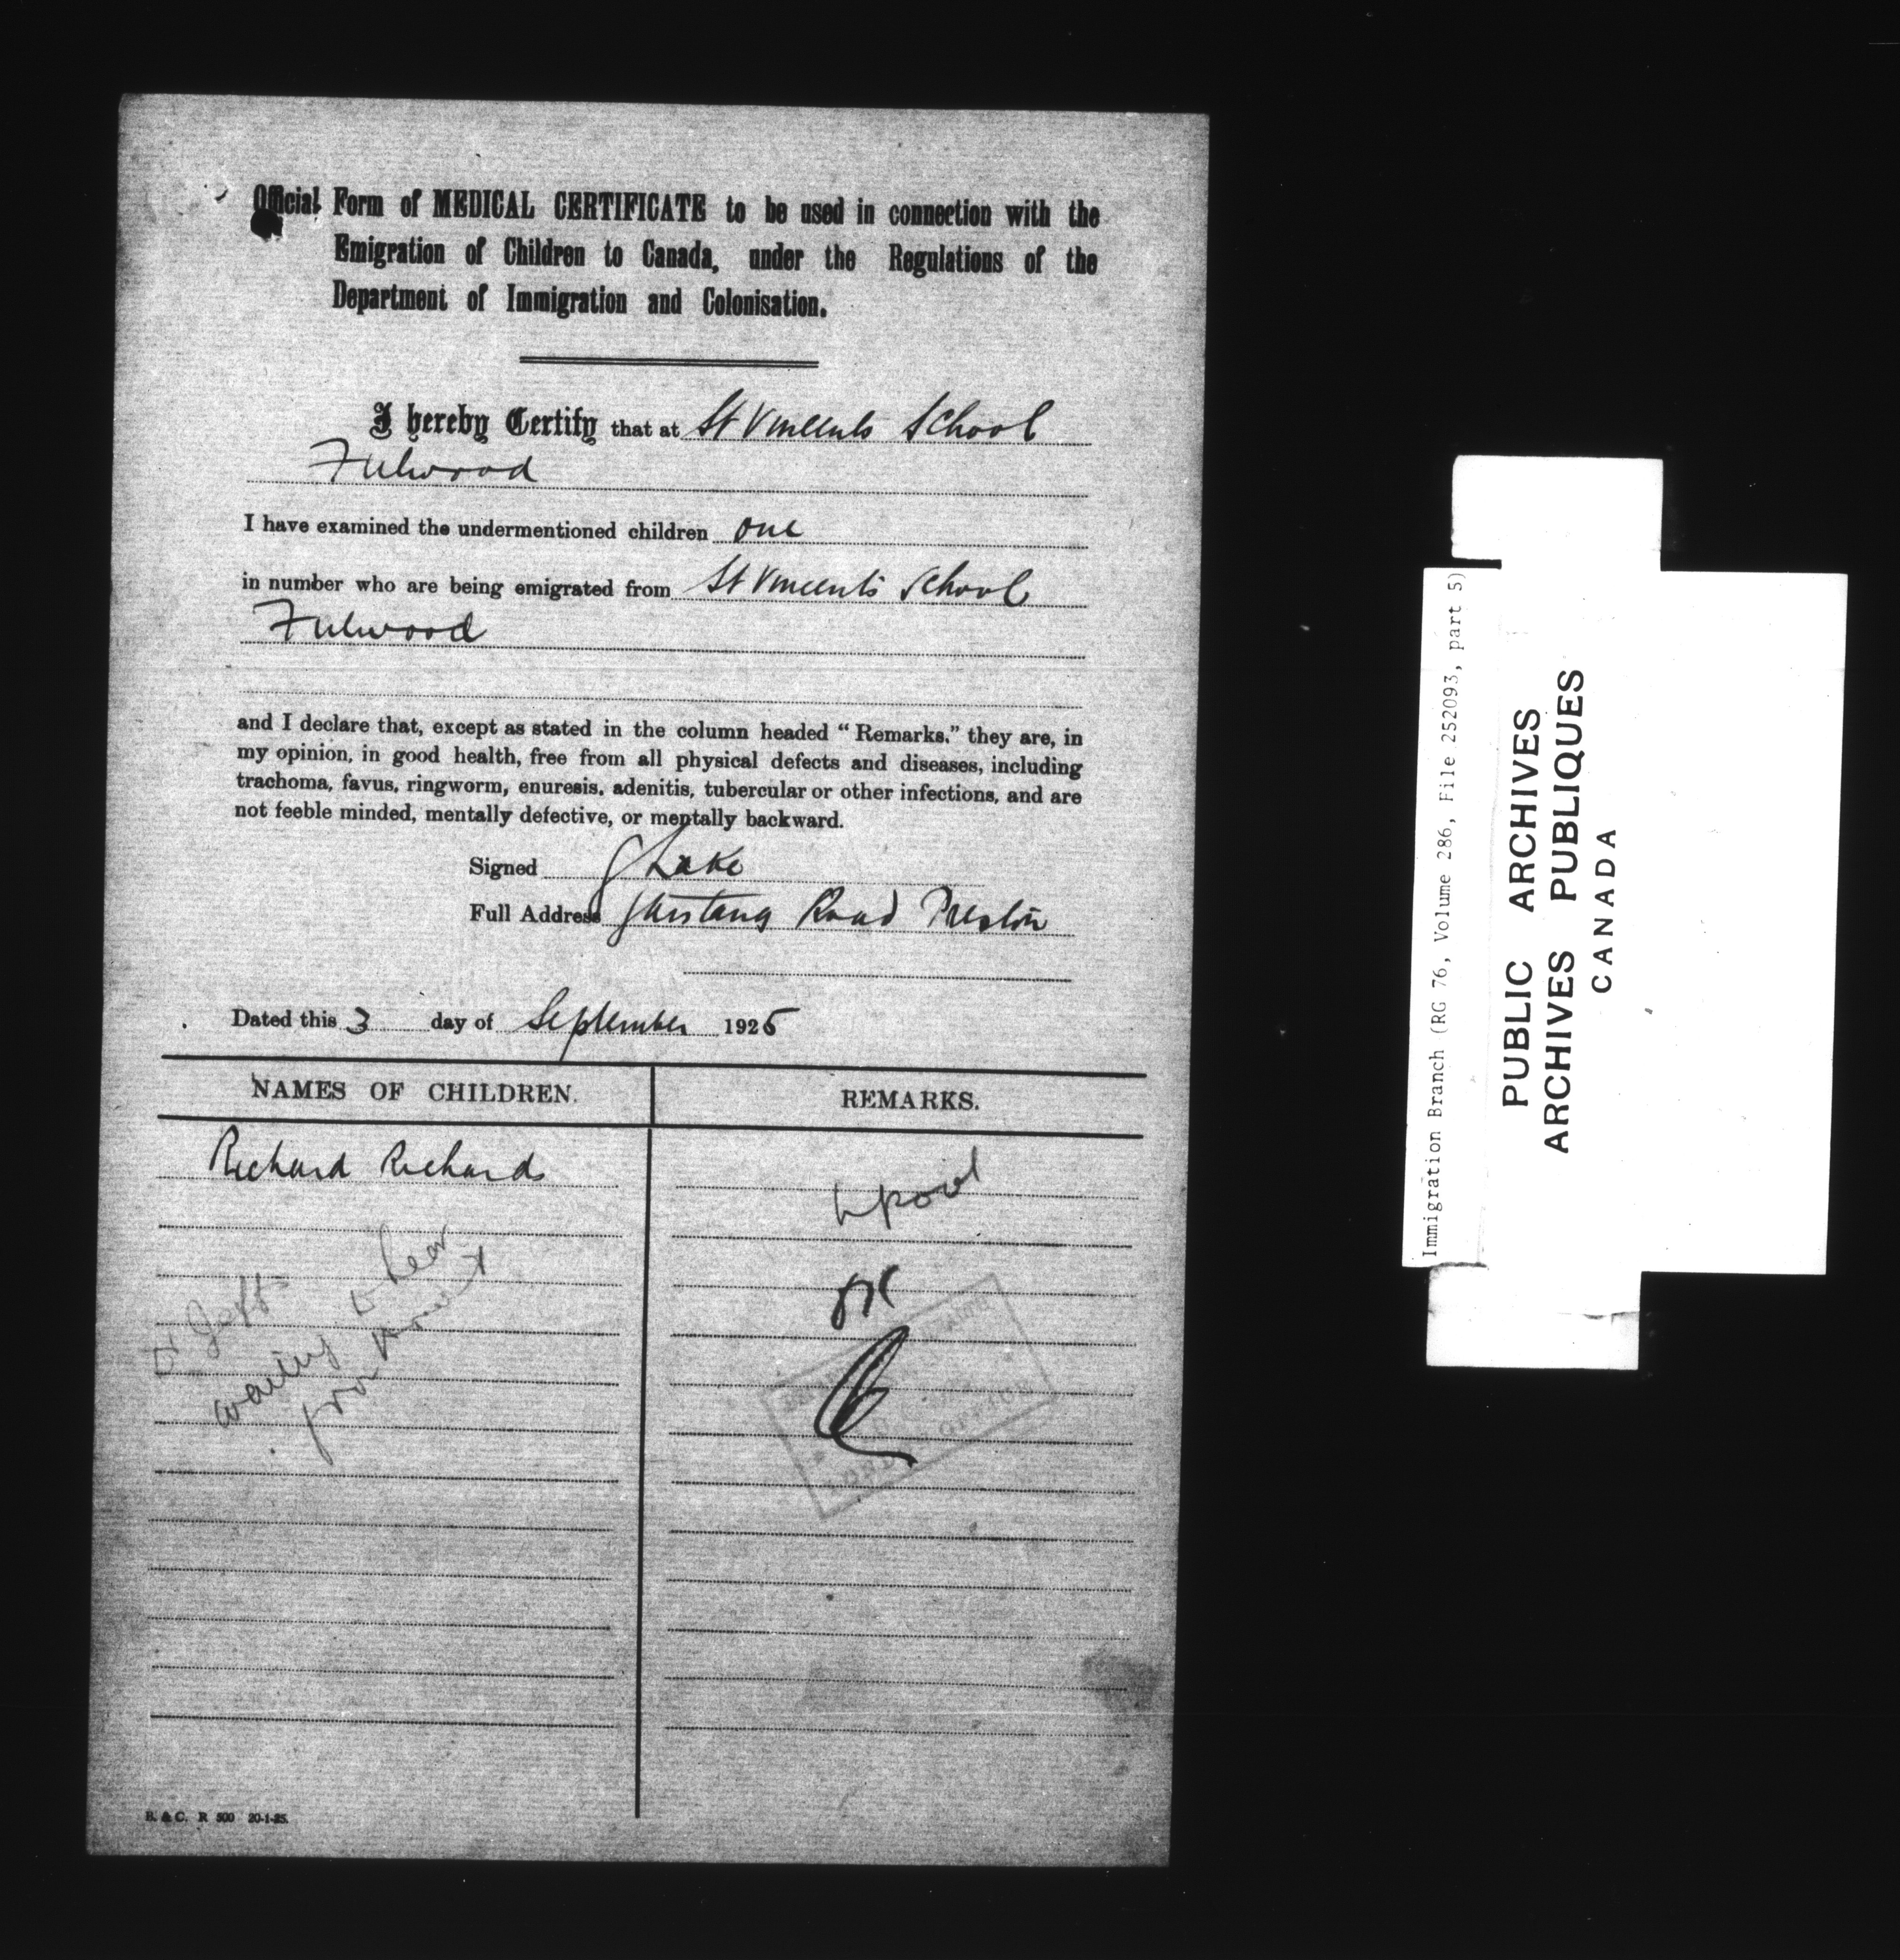 Official Form of MEDICAL CERTIFICATE to be used in connection with the
Emigration of Children to Canada, under the Regulations of the
Department of Immigration and Colonisation.
I hereby Certify that at St Vincents School
Fulwood
I have examined the undermentioned children one
in number who are being emigrated from St Vincents School
Fulwood
and I declare that, except as stated in the column headed "Remarks," they are, in
my opinion, in good health, free from all physical defects and diseases, including
trachoma, favus, ringworm, enuresis, adenitis, tubercular or other infections, and are
not feeble minded, mentally defective, or mentally backward.
Signed Lake
Full Address Garstang Road Preston
Dated this 3 day of September 1925
NAMES OF CHILDREN.
REMARKS.
Richard Richards
Lpool
OK
Dr Jeffs
waiting to hear
from
OFFICE
B. & C. R 500 20-1-25.
Immigration Branch (RG 76, Volume 286, File 252093, part 5)
PUBLIC ARCHIVES
ARCHIVES PUBLIQUES
CANADA